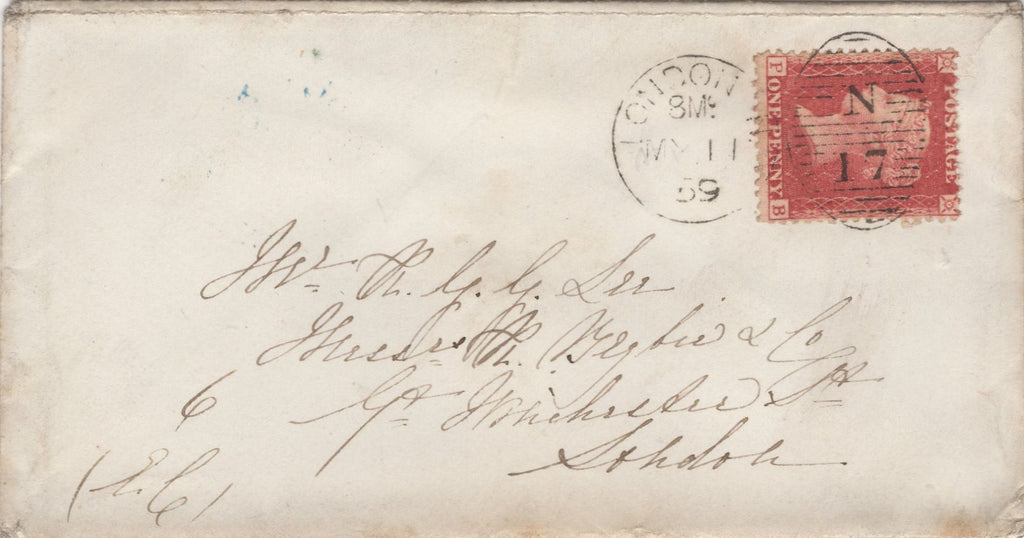 LONDON
8M
MY 11
59
N
17
POSTAGE
ONE PENNY
P
B
Mr. R. G. G. Lee
Messrs R. Begbie & Co
6 Gt. Winchester St
London
(E.C)